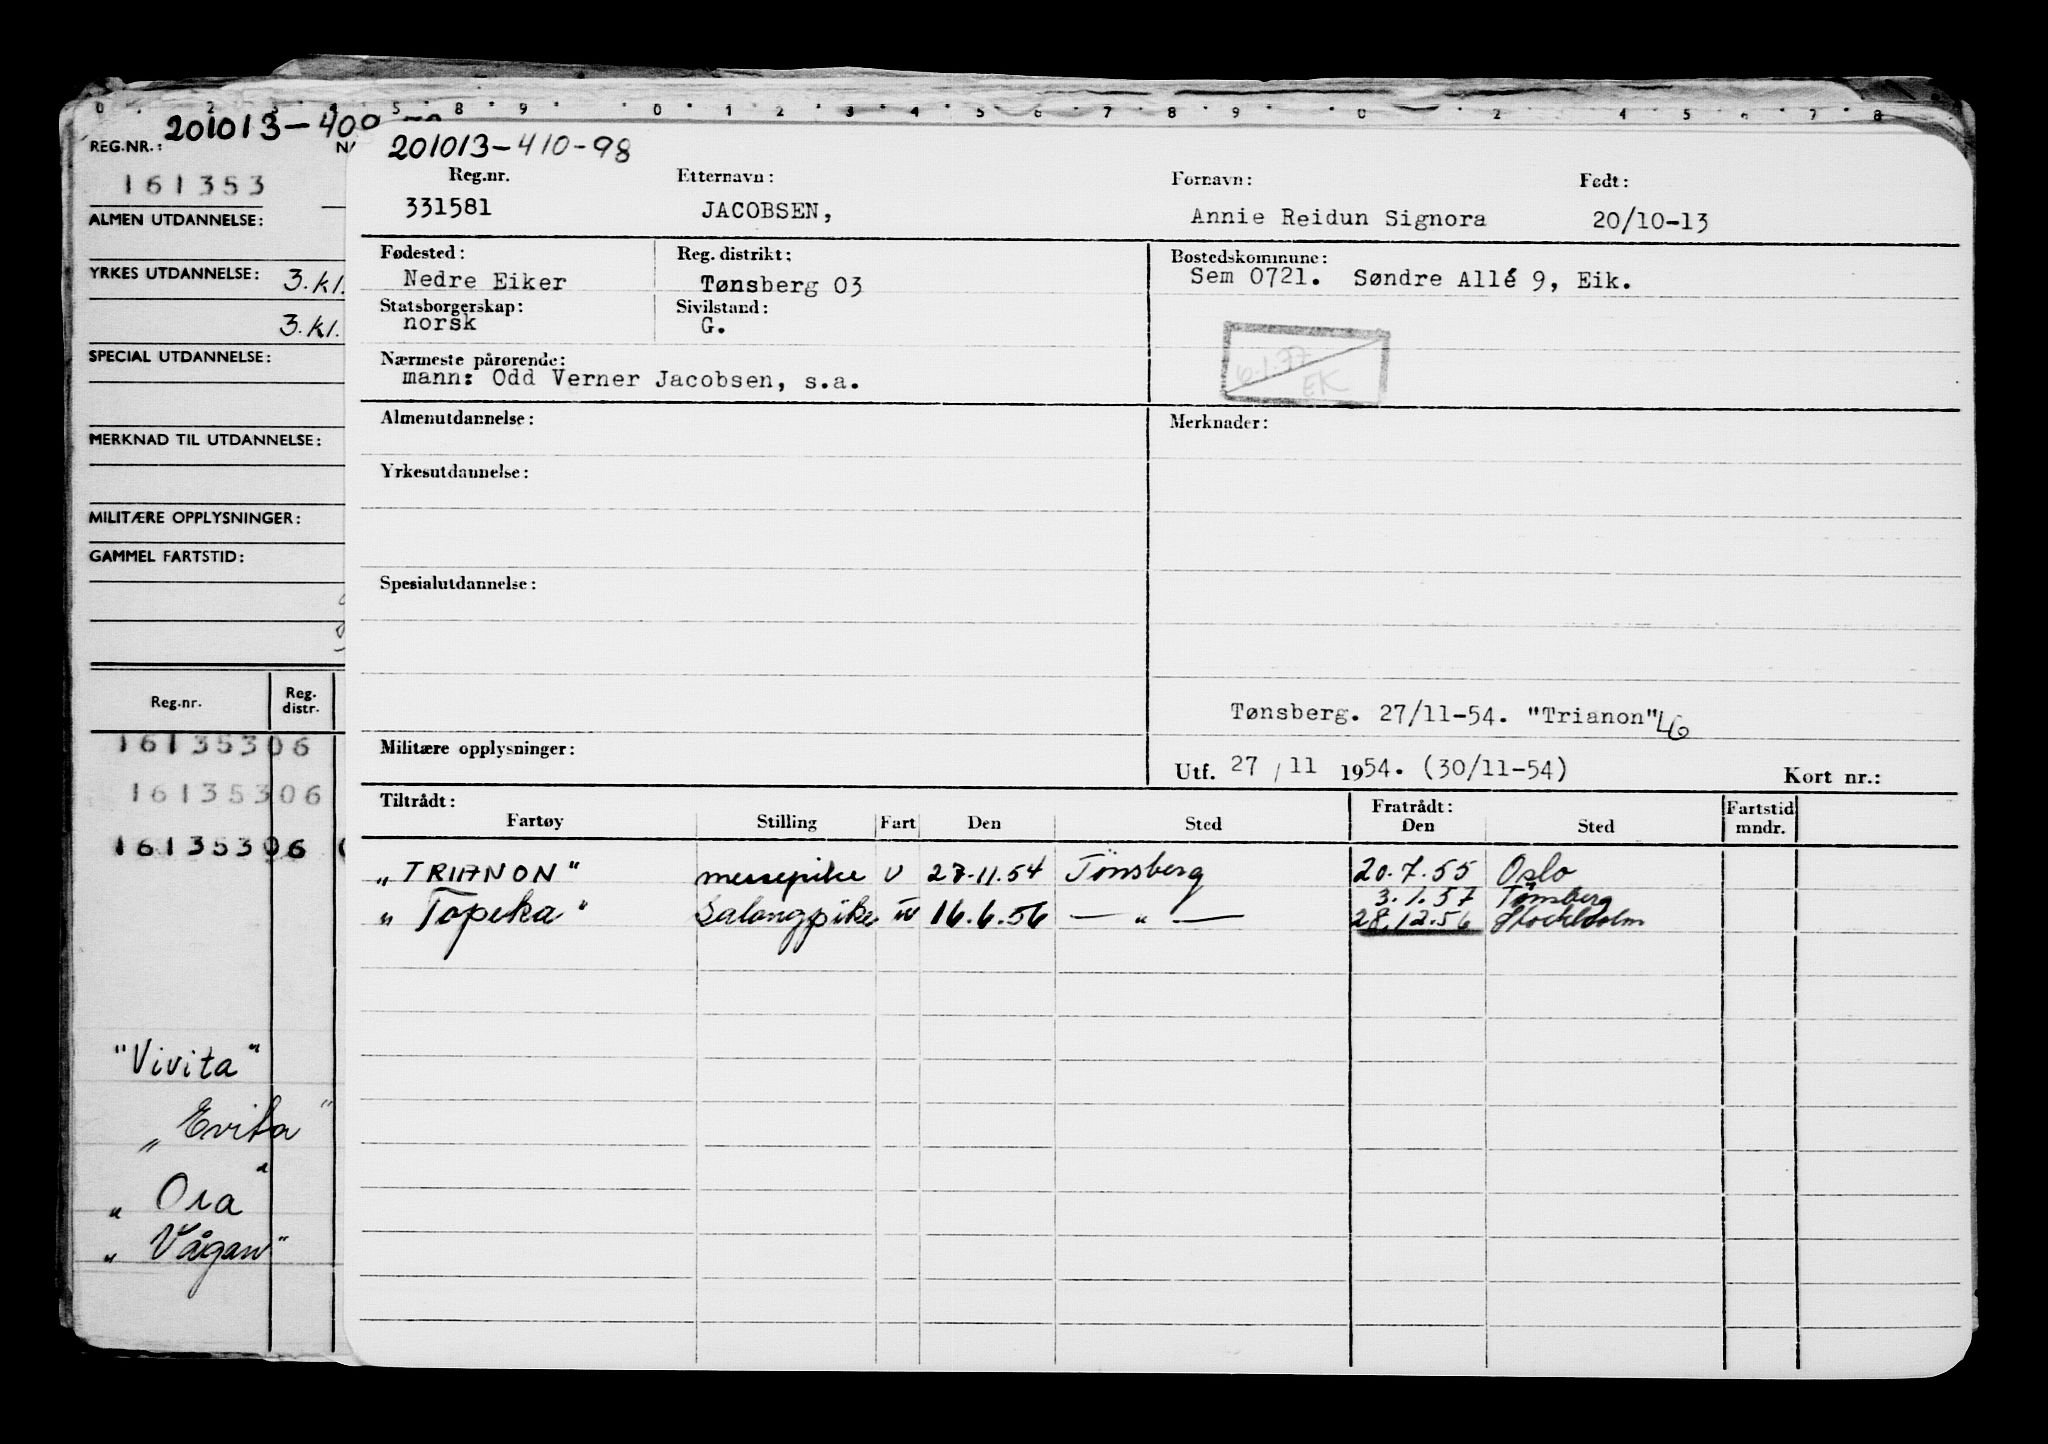 0 2 3 4 5 8 9 0 1 2 3 4 5 6 7 8 9 0 2 4 5 7 8
201013-409
REG.NR.:
161353
ALMEN UTDANNELSE:
YRKES UTDANNELSE: 3.kl.
3.kl.
SPECIAL UTDANNELSE:
MERKNAD TIL UTDANNELSE:
MILITÆRE OPPLYSNINGER:
GAMMEL FARTSTID:
Reg.nr. Reg. distr.
16135306
16135306
16135306
"Vivita"
„Evita"
„Ora"
„Vågan"
201013-410-98
Reg.nr. Etternavn: Fornavn: Født:
331581 JACOBSEN, Annie Reidun Signora 20/10-13
Fødested: Reg. distrikt: Bostedskommune:
Nedre Eiker Tønsberg 03 Sem 0721. Søndre Allé 9, Eik.
Statsborgerskap: Sivilstand:
norsk G.
6.1.77
EK
Nærmeste pårørende:
mann: Odd Verner Jacobsen, s.a.
Almenutdannelse: Merknader:
Yrkesutdannelse:
Spesialutdannelse:
Tønsberg. 27/11-54. "Trianon"
Militære opplysninger:
Utf. 27/11 1954. (30/11-54) Kort nr.:
Tiltrådt: Fratrådt: Fartstid
Fartøy Stilling Fart Den Sted Den Sted mndr.
„TRIANON" messepike U 27.11.54 Tønsberg 20.7.55 Oslo
3.1.57 Tønsberg
„Topeka" Salongpike U 16.6.56 — „ — 28.12.56 Stockholm